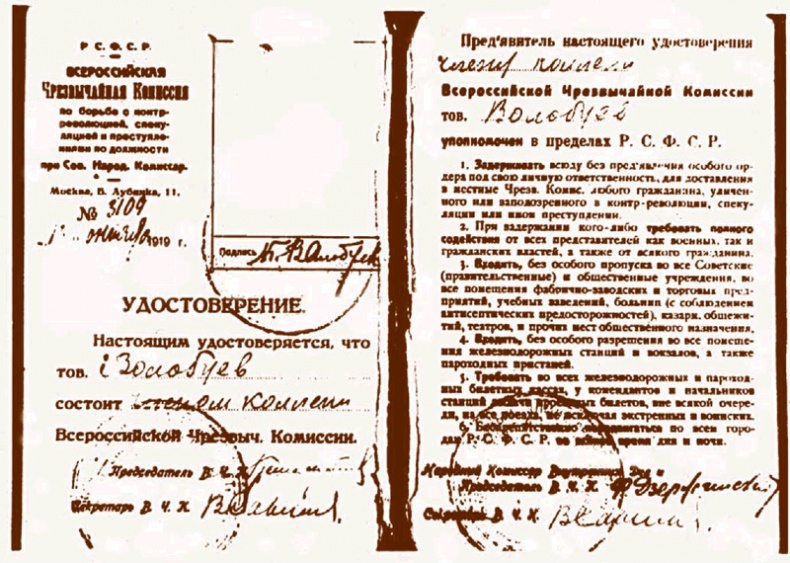 Р. С. Ф. С. Р.
ВСЕРОССИЙСКАЯ
Чрезвычайная Комиссия
по борьбе с контр-
революцией, спеку-
ляцией и преступле-
ниями по должности
при Сов. Народ. Комиссар.
Москва, Б. Лубянка, 11.
№ 3109
1919 г.
Подпись
УДОСТОВЕРЕНИЕ.
Настоящим удостоверяется, что
тов.
состоит членом коллегии
Всероссийской Чрезвыч. Комиссии.
Председатель В. Ч. К.
Секретарь В. Ч. К.
Пред'явитель настоящего удостоверения
член коллегии
Всероссийской Чрезвычайной Комиссии
тов. Волобуев
уполномочен в пределах Р. С. Ф. С. Р.
1. Задерживать всюду без пред'явления особого ор-
дера под свою личную ответственность, для доставления
в местные Чрезв. Комис. любого гражданина, уличен-
ного или заподозренного в контр-революции, спеку-
ляции или ином преступлении.
2. При задержании кого-либо требовать полного
содействия от всех представителей как военных, так и
гражданских властей, а также от всякого гражданина.
3. Входить, без особого пропуска во все Советские
(правительственные) и общественные учреждения, во
все помещения фабрично-заводских и торговых пред-
приятий, учебных заведений, больниц (с соблюдением
антисептических предосторожностей), казарм, общежи-
тий, театров, и прочих мест общественного назначения.
4. Входить, без особого разрешения во все помеще-
ния железнодорожных станций и вокзалов, а также
пароходных пристаней.
5. Требовать во всех железнодорожных и пароход-
ных билетных кассах, у комендантов и начальников
станций выдачи проездных билетов, вне всякой очере-
ди, на все поезда, не исключая экстренных и воинских.
6. Беспрепятственно передвигаться по всем горо-
дам Р. С. Ф. С. Р. во всякое время дня и ночи.
Народный Комиссар Внутренних Дел и
Председатель В. Ч. К. Ф Дзержинский
Секретарь В. Ч. К.